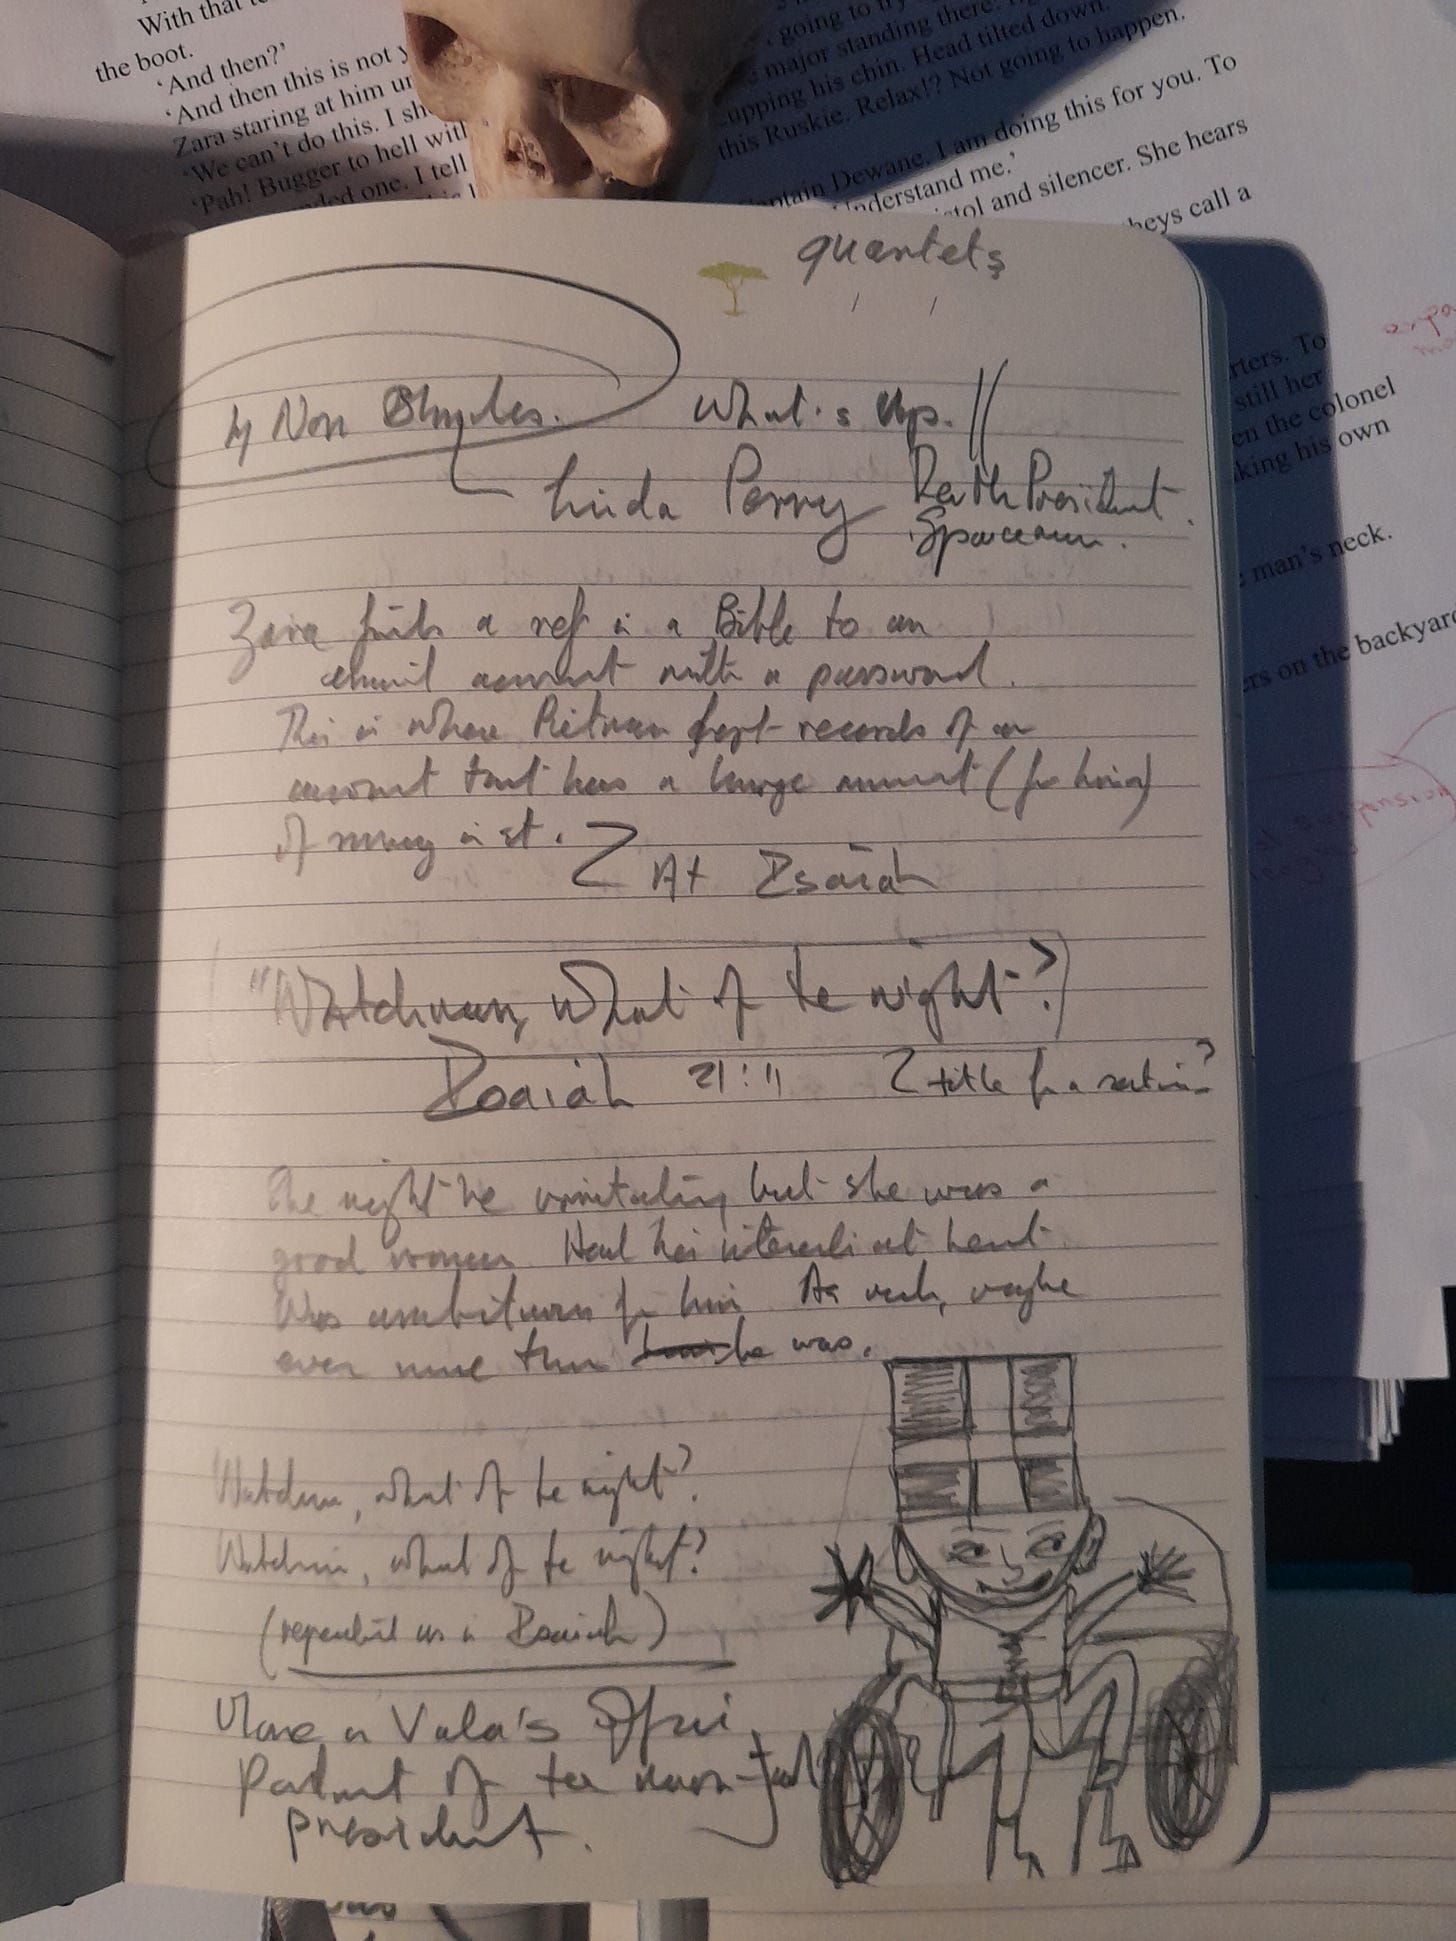 With that
the boot.
'And then?'
'And then this is not
Zara staring at him
'We can't do this. I
'Pah! Bugger to hell with
one. I tell
going to try
major standing there.
chin. Head tilted down.
this Ruskie. Relax!? Not going to happen.
Dewane. I am doing this for you. To
me.'
and silencer. She hears
call a
To
still her
the colonel
his own
man's neck.
on the backyard
quartets
4 Non Blondes. What's Up.
Linda Perry Death President.
Spaceman.
Zara finds a ref in a Bible to an
email account with a password.
This is where Pitman kept records of an
account that has a large amount (for him)
of money in it.
At Isaiah
"Watchman, what of te night?
Isaiah 21:11 title for a section?
she was a
good woman. Had his interests at heart
Was ambitious for him. As much, maybe
even more than he was.
Watchman, what of te night?
Watchman, what of te night?
(repeated as in Isaiah)
in Vula's office
Portrait of the
president.